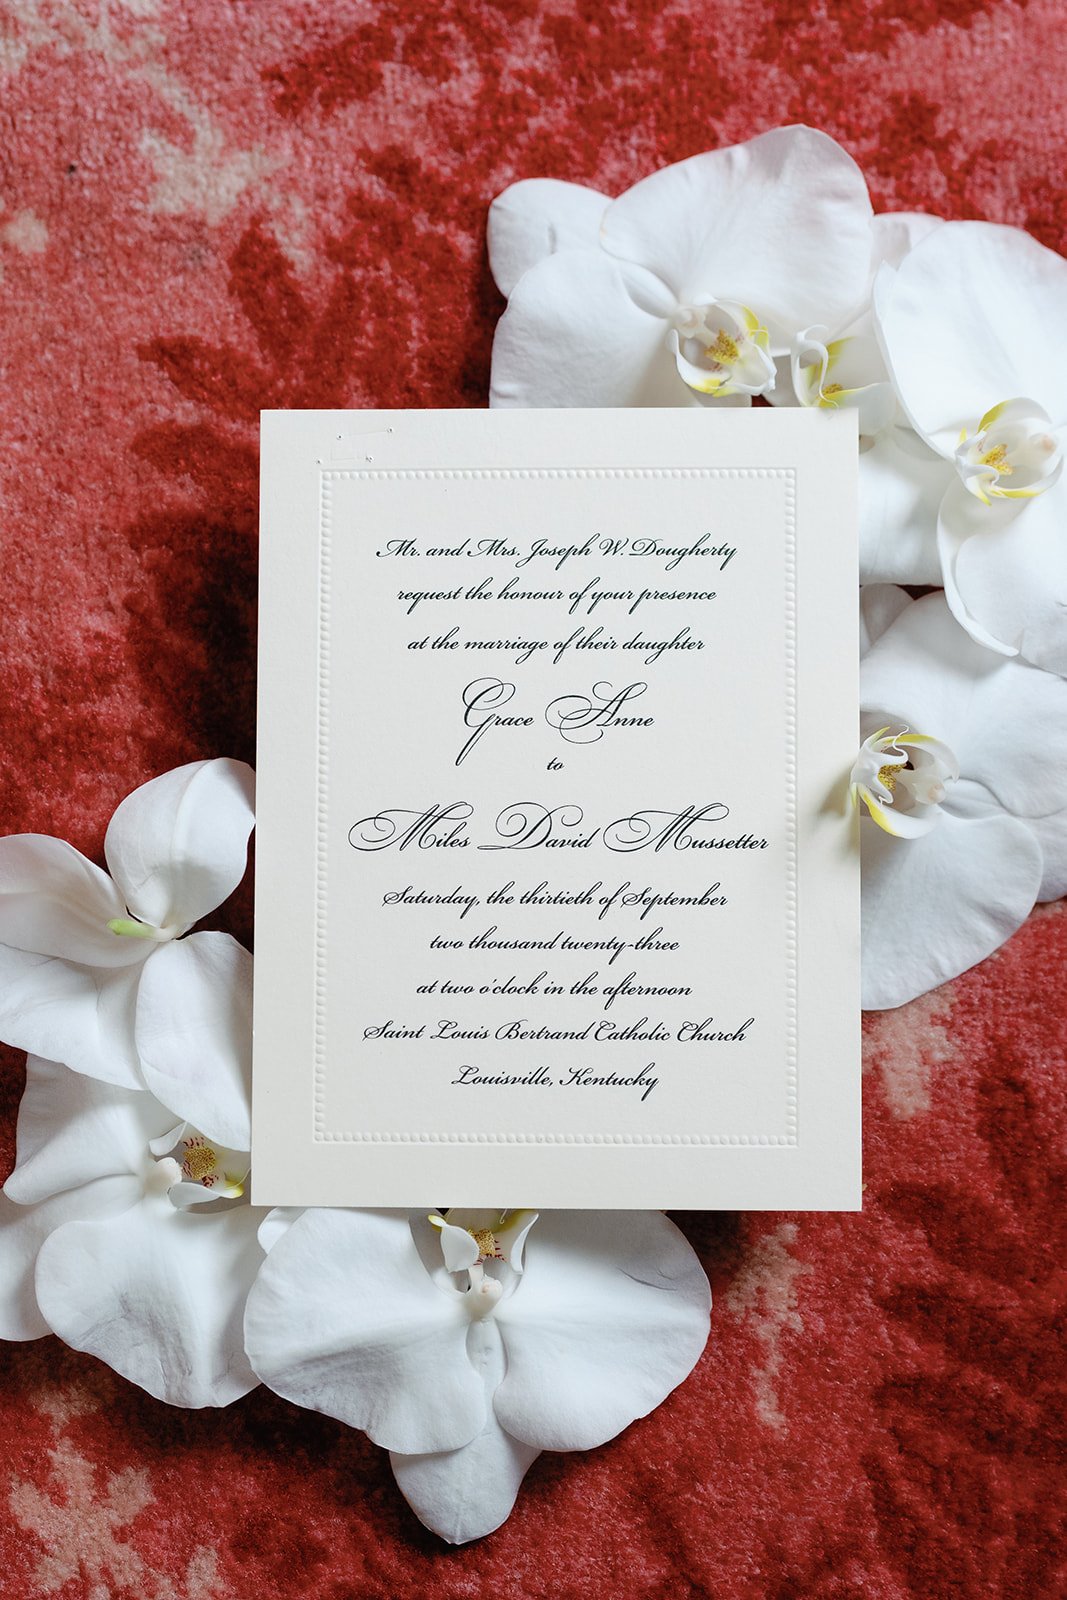 Mr. and Mrs. Joseph W. Dougherty
request the honour of your presence
at the marriage of their daughter
Grace Anne
to
Miles David Mussetter
Saturday, the thirtieth of September
two thousand twenty-three
at two o'clock in the afternoon
Saint Louis Bertrand Catholic Church
Louisville, Kentucky